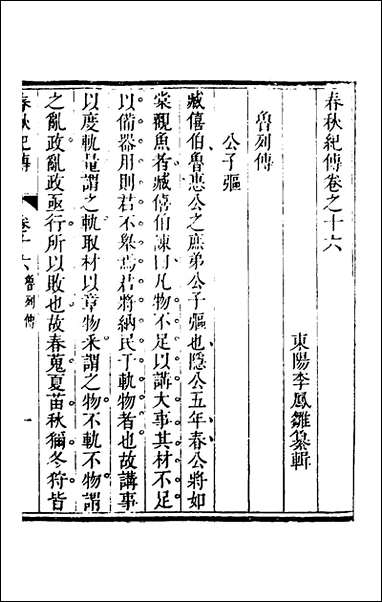 春秋紀傳卷之十六
東陽李鳳雛纂輯
魯列傳
公子彄
臧僖伯魯惠公之庶弟公子彄也隱公五年春公將如
棠觀魚者臧僖伯諫曰凡物不足以講大事其材不足
以備器用則君不舉焉君將納民于軌物者也故講事
以度軌量謂之軌取材以章物采謂之物不軌不物謂
之亂政亂政亟行所以敗也故春蒐夏苗秋獮冬狩皆
春秋紀傳 卷十六 魯列傳 一